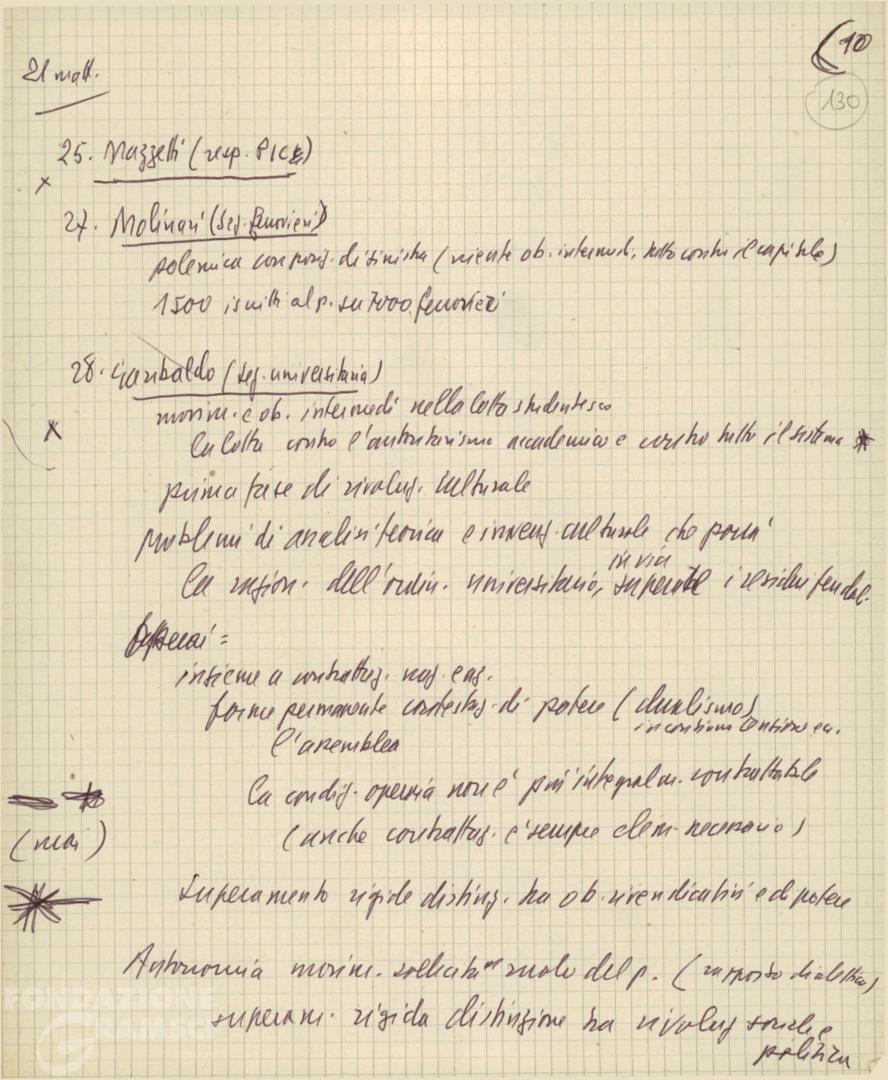 (10
130
21 matt.
25. Mazzetti (resp. PICE)
x
27. Molinari (seg. ferrovieri)
polemica con posiz. di sinistra (niente ob. intermedi, tutto contro il capitale)
1500 iscritti al p. su 7000 ferrovieri
28. Garibaldo (seg. universitaria)
movim. e ob. intermedi nella lotta studentesca
x la lotta contro l'autoritarismo accademico e contro tutto il sistema *
prima fase di rivoluz. culturale
problemi di analisi teorica e invenz. culturale che
la dell'ordin. universitario,
in via
i residui feudal.
Operai =
insieme a contrattaz. naz. e az.
forme permanente contestaz. di potere (dualismo)
l'assemblea
la condiz. operaia non è più integralm. contrattabile
(anche contrattaz. è sempre elem. necessario)
superamento rigide distinz. tra ob. rivendicativi e di potere
Autonomia movim. ruolo del p. (rapporto dialettico)
superam. rigida distinzione tra rivoluz sociale e
politica
FONDAZIONE